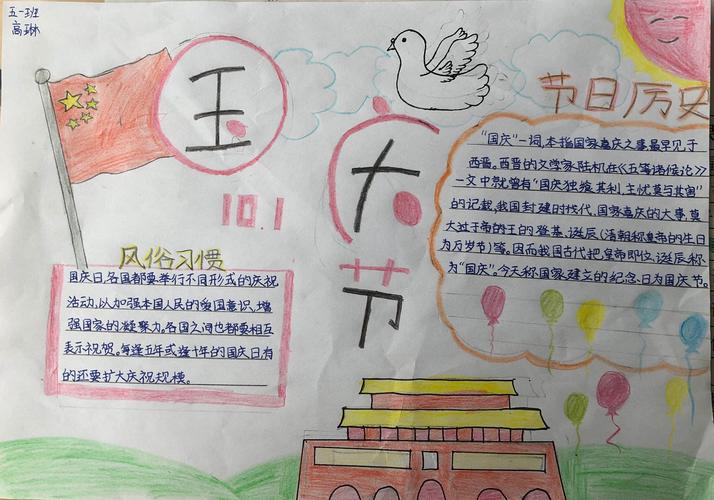 五一班
高琳
国
庆
节
10.1
节日历史
"国庆"一词,本指国家喜庆之事最早见于
西晋。西晋的文学家陆机在《五等诸侯论》
一文中就曾有"国庆独飨其利,主忧莫与其害"
的记载,我国封建时代、国家喜庆的大事,莫
大过于帝的王的登基、诞辰(清朝称皇帝的生日
为万岁节)等。因而我国古代把皇帝即位、诞辰称
为"国庆"。今天称国家建立的纪念、日为国庆节。
风俗习惯
国庆日,各国都要举行不同形式的庆祝
活动,以加强本国人民的爱国意识,增
强国家的凝聚力。各国之间也都要相互
表示祝贺。每逢五年或逢十年的国庆日,有
的还要扩大庆祝规模。